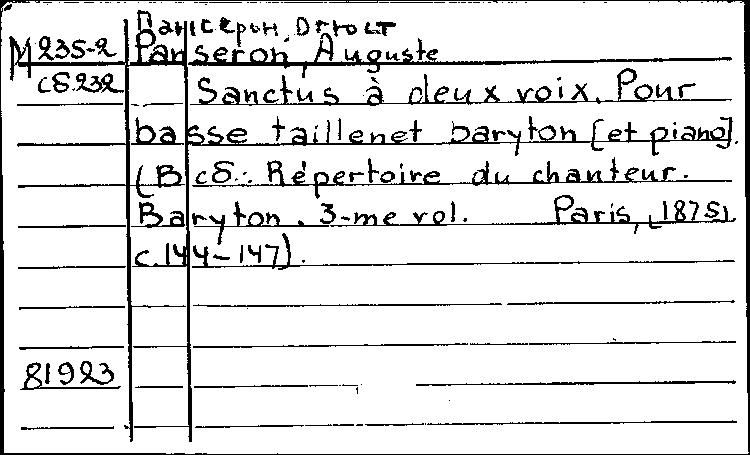 Пансерон, Огюст
M 235-2 Panseron, Auguste
сб.232 Sanctus à deux voix. Pour
basse taillenet baryton [et piano].
(В сб.: Répertoire du chanteur.
Baryton. 3-me vol. Paris, [1875].
с.144-147).
81923